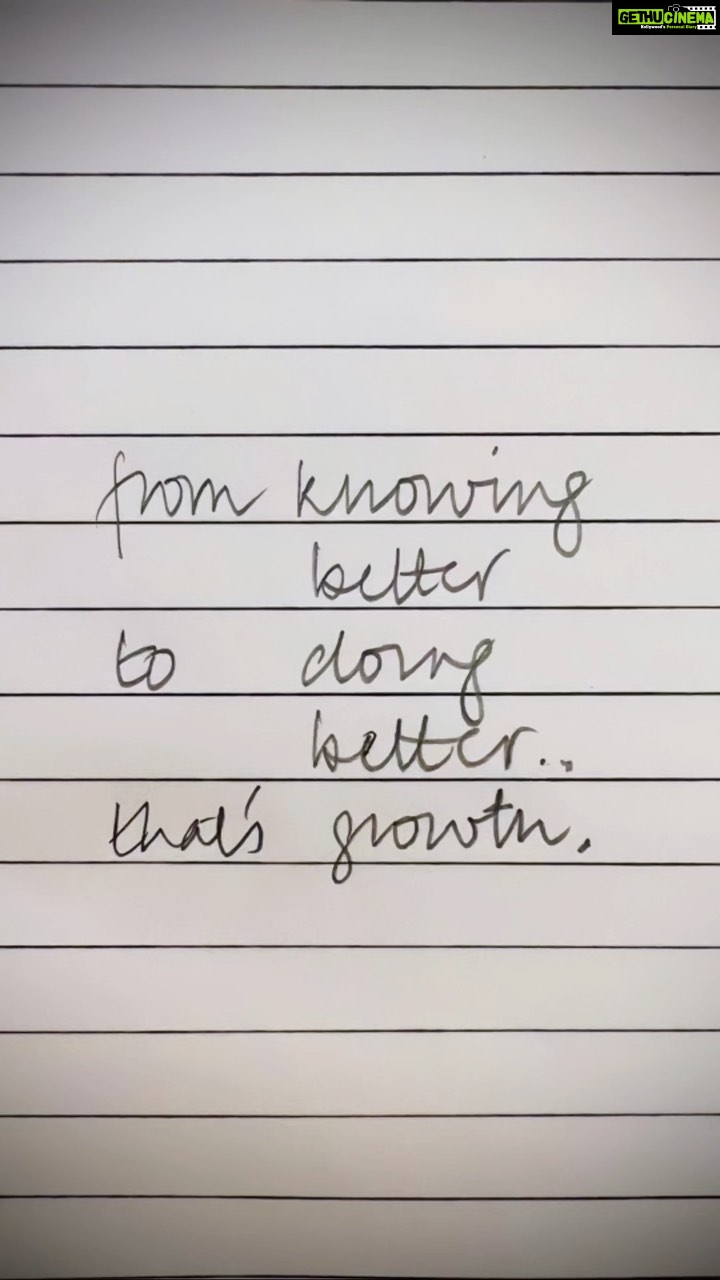 GETHU CINEMA
Kollywood's Personal Diary
from knowing
better
to doing
better..
that's growth.